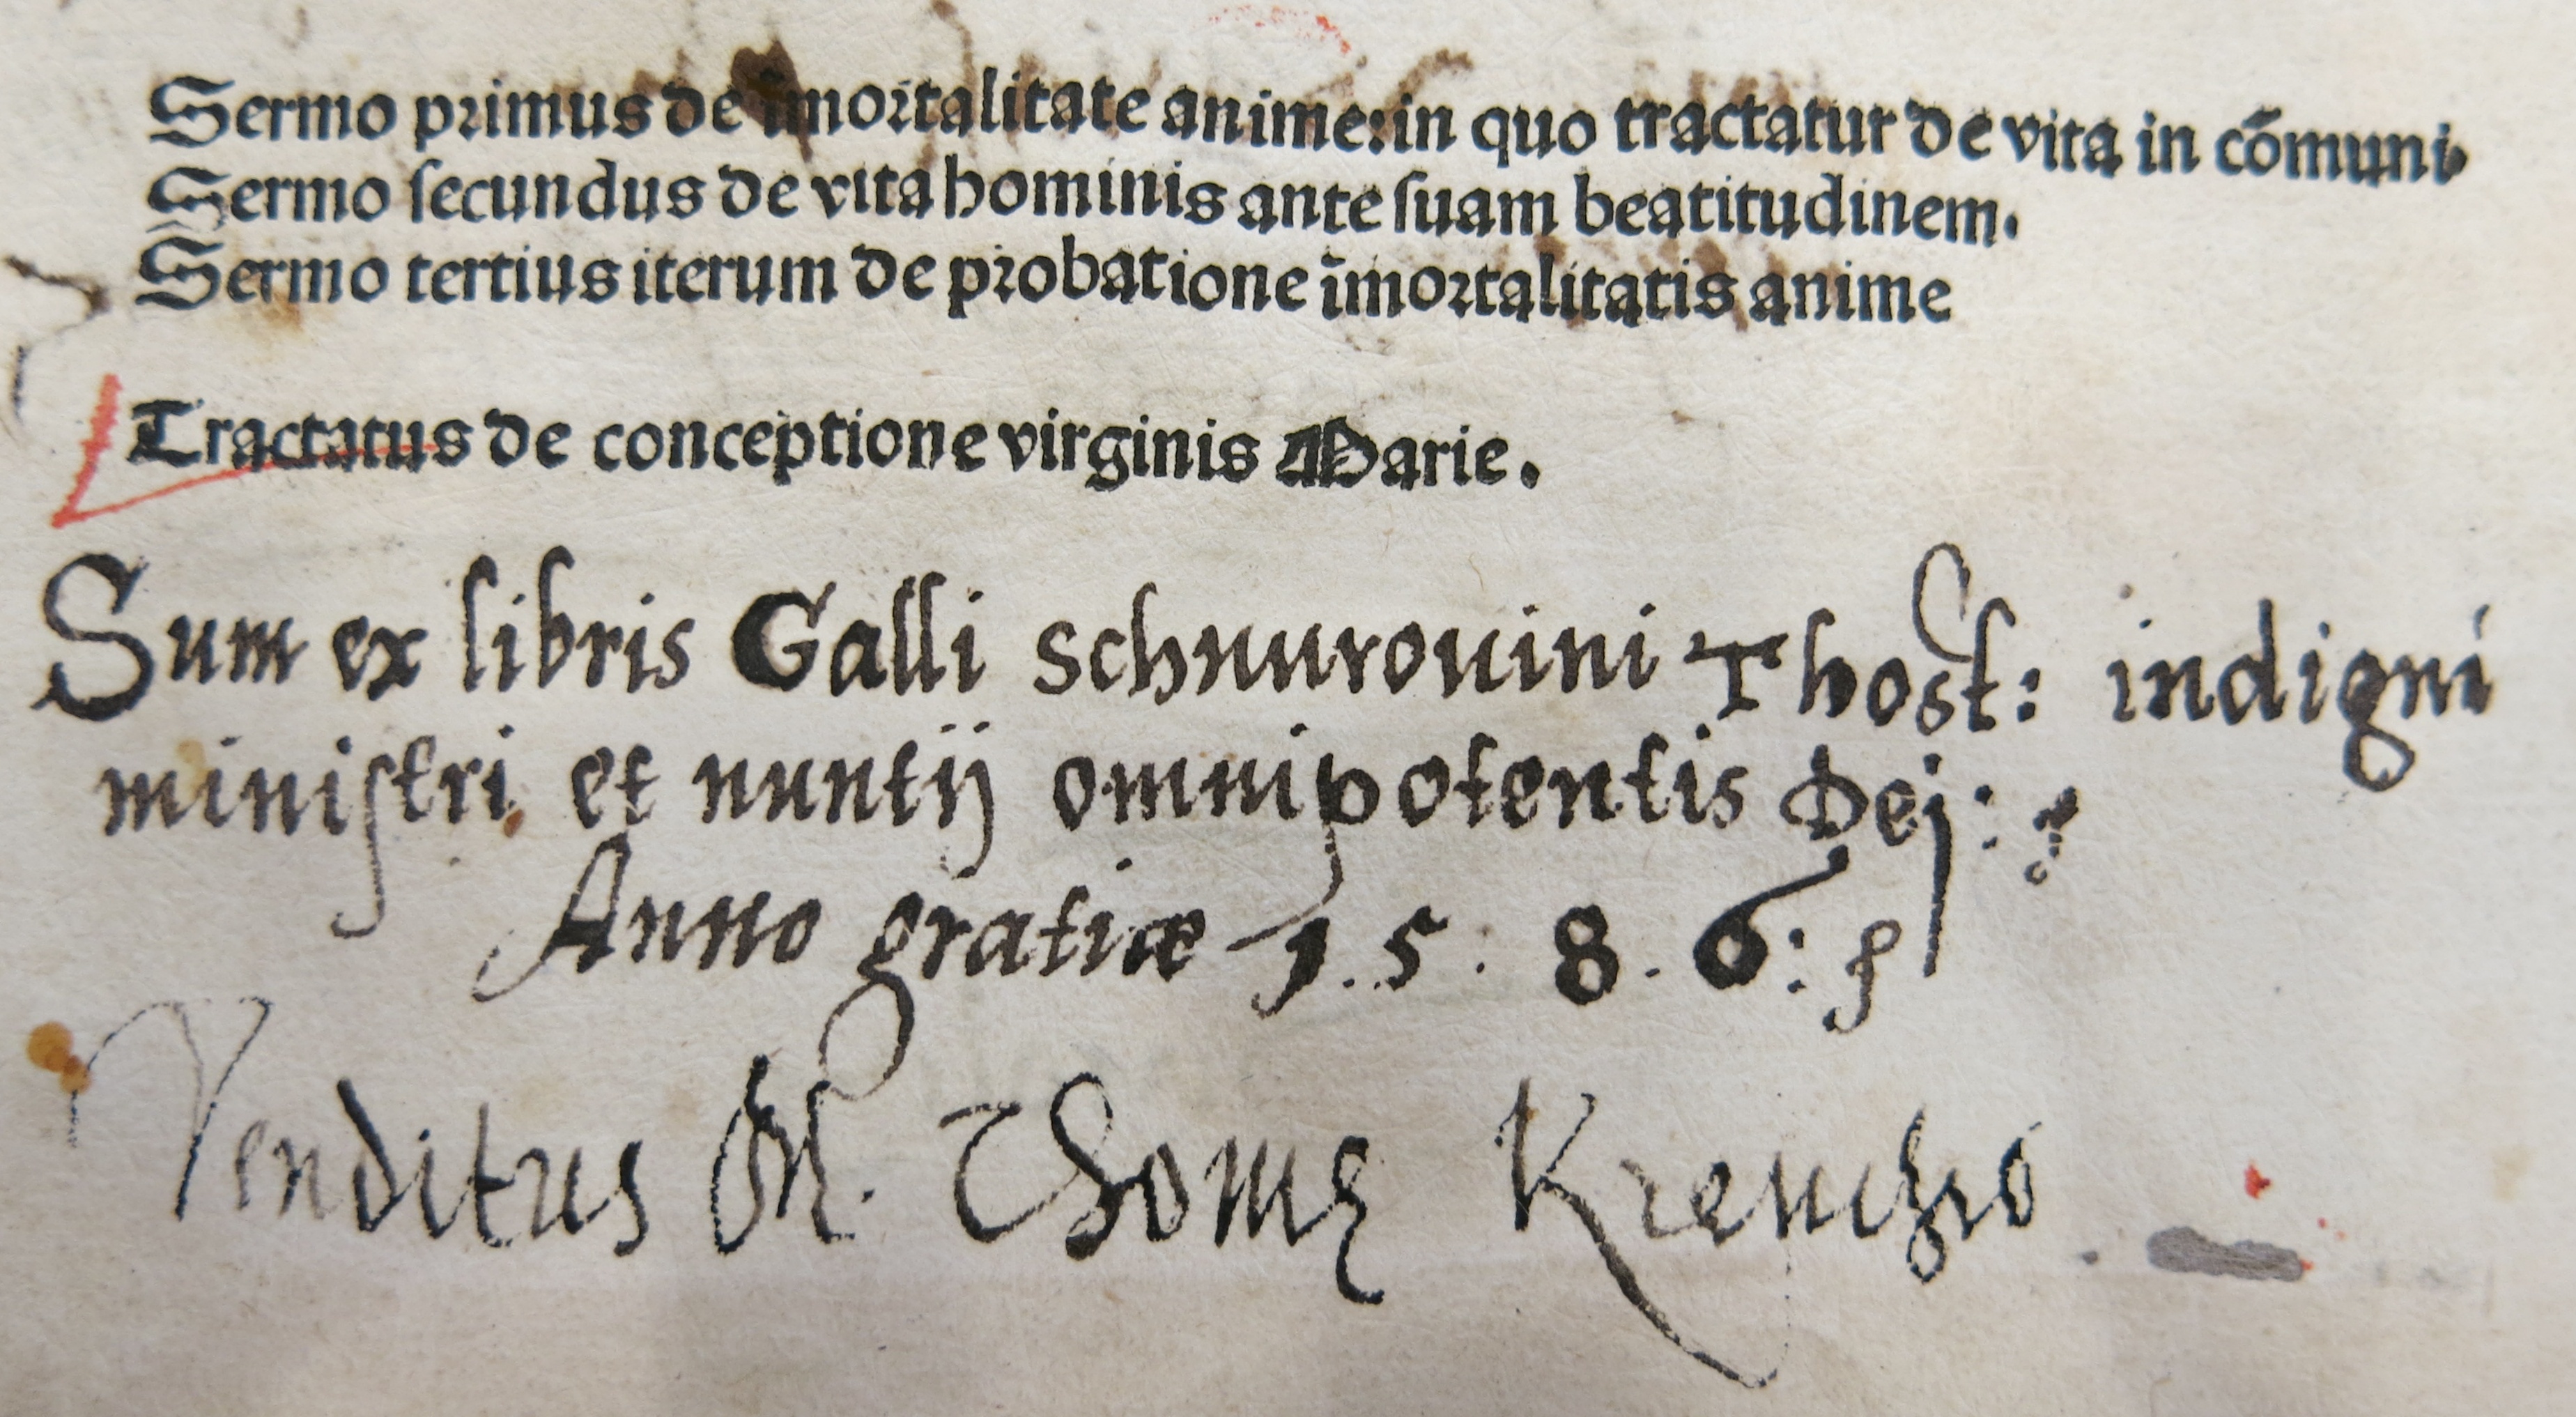 Sermo primus de īmortalitate anime: in quo tractatur de vita in cōmuni
Sermo secundus de vita hominis ante suam beatitudinem.
Sermo tertius iterum de probatione īmortalitatis anime
Tractatus de conceptione virginis Marie.
Sum ex libris Galli schnurouini Thost: indigni
ministri et nuntij omnipotentis Dej:
Anno gratiæ 1.5.8.6:
Venditus M. Thomę